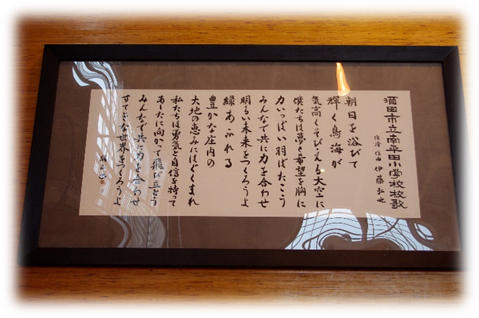 酒田市立南平田小学校校歌
作詞 作曲 伊藤弘之
朝日を浴びて
輝く鳥海が
気高くそびえる大空に
僕たちは夢と希望を胸に
力いっぱい羽ばたこう
みんなで共に力を合わせ
明るい未来をつくろうよ
緑あふれる
豊かな庄内の
大地の恵みにはぐくまれ
私たちは勇気と自信を持って
あしたに向かって飛び立とう
みんなで共に力を合わせ
すてきな世界をつくろうよ